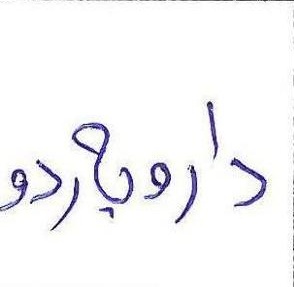 داروباردو